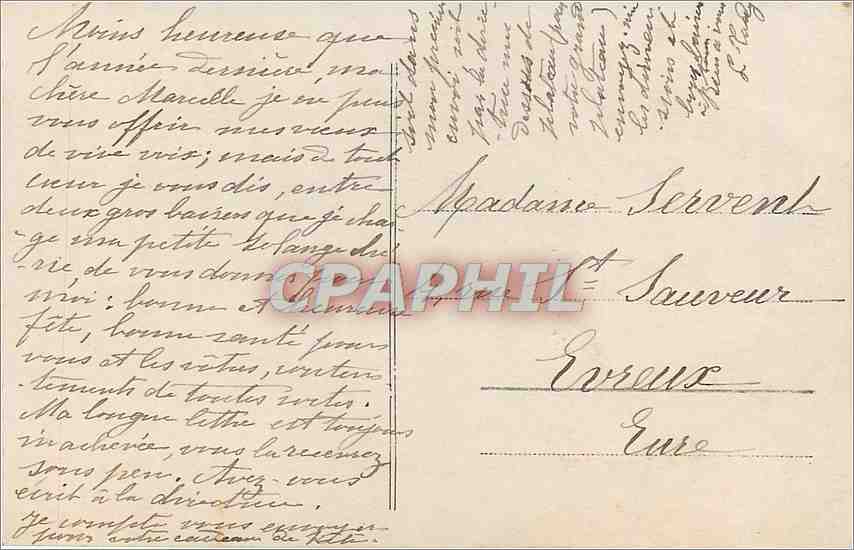 Moins heureuse que
l'année dernière, ma
chère Marcelle je ne puis
vous offrir mes vœux
de vive voix; mais de tout
cœur je vous dis, entre
deux gros baisers que je char-
-ge ma petite Solange ché-
-rie, de vous donner pour
moi: bonne et heureuse
fête, bonne santé pour
vous et les vôtres, conten-
-tements de toutes sortes.
Ma longue lettre est toujours
inachevée, vous la recevrez
sous peu. Avez-vous
écrit à la directrice.
Je compte vous envoyer
pour votre cadeau de fête
soit dans
mon prochain
envoi soit
par la direc
trice un
dessus de
plateau (pour
votre grand
plateau)
envoyez-moi
les dimen
sions et
Madame Servent
rue St Sauveur
Evreux
Eure
CPAPHIL